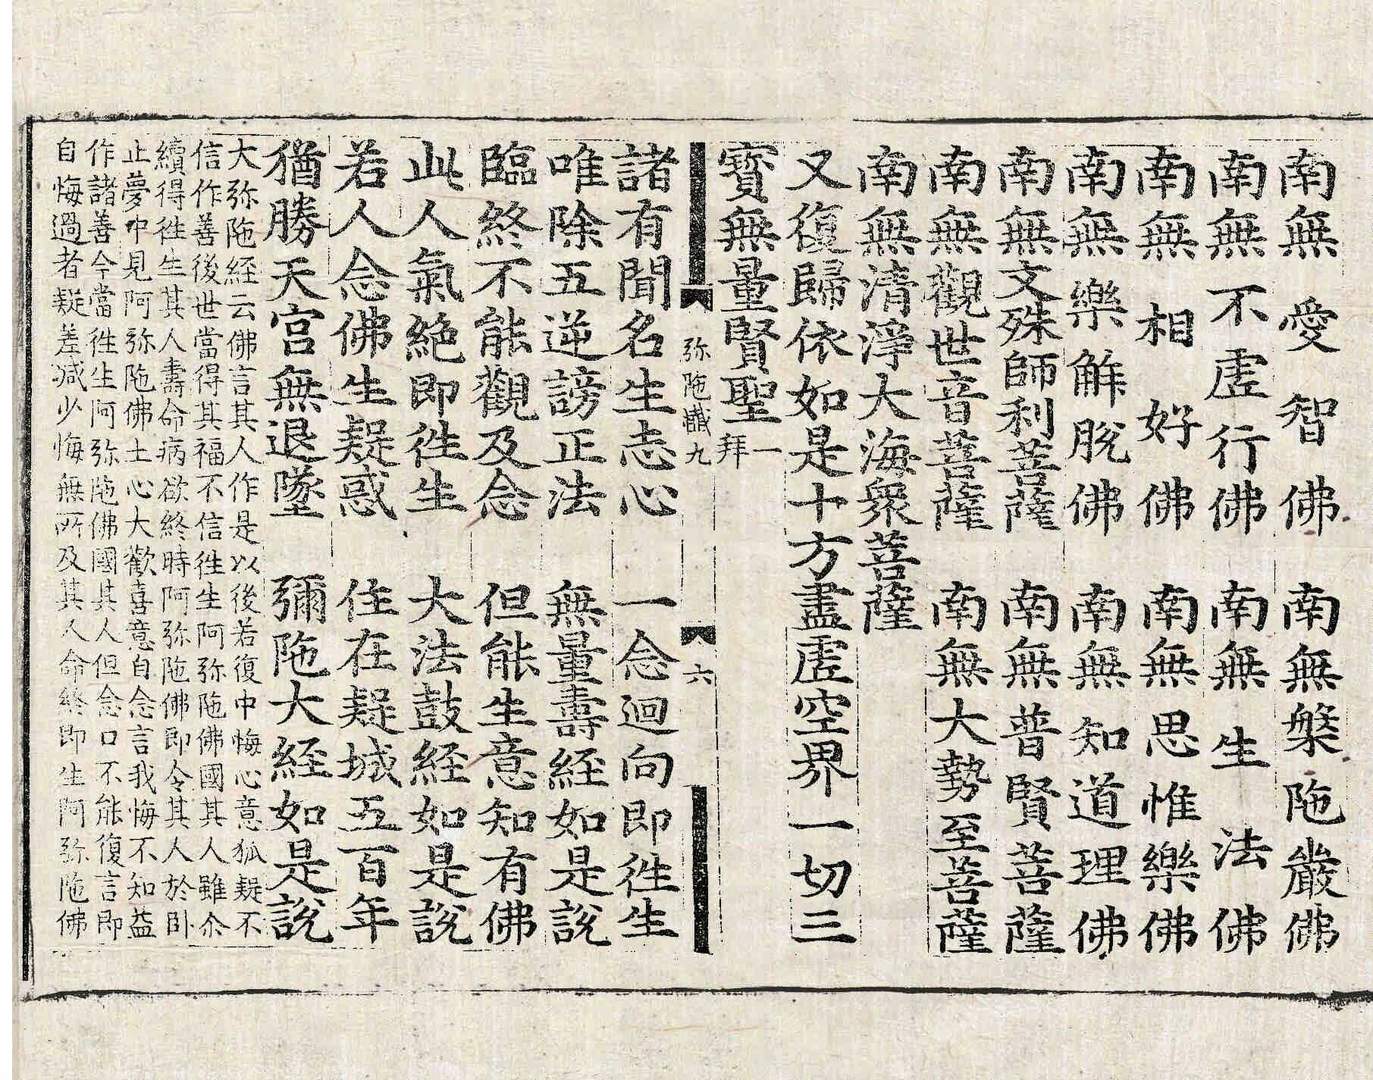 南無愛智佛　南無槃陁嚴佛
南無不虗行佛　南無生法佛
南無相好佛　南無思惟樂佛
南無樂解脫佛　南無知道理佛
南無文殊師利菩薩　南無普賢菩薩
南無觀世音菩薩　南無大勢至菩薩
南無清淨大海衆菩薩
又復歸依如是十方盡虗空界一切三
寶無量賢聖一拜
弥陁懺九　六
諸有聞名生志心　一念迴向即徃生
唯除五逆謗正法　無量壽經如是說
臨終不能觀及念　但能生意知有佛
此人氣絶即徃生　大法鼓經如是說
若人念佛生疑惑　住在疑城五百年
猶勝天宮無退墜　彌陁大經如是說
大弥陁經云佛言其人作是以後若復中悔心意狐疑不
信作善後世當得其福不信徃生阿弥陁佛國其人雖尒
續得徃生其人壽命病欲終時阿弥陁佛即令其人於卧
止夢中見阿弥陁佛土心大歡喜意自念言我悔不知益
作諸善今當徃生阿弥陁佛國其人但念口不能復言即
自悔過者疑差减少悔無所及其人命終即生阿弥陁佛